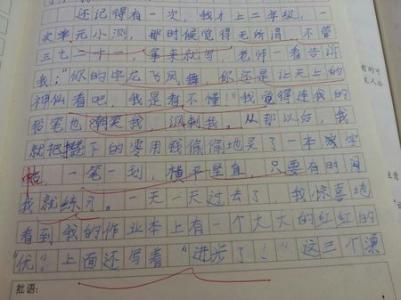 还记得有一次,我才上二年级,一
次单元小测,那时候觉得无所谓,不管
三七二十一,拿来就写,老师一看告诉
我:“你的字龙飞凤舞,你还是让天上的
神仙看吧,我是看不懂!”我觉得连我的
铅笔也嘲笑我,讽刺我。从那以后,我
就把攒下的零用钱偷偷地买了一本字
帖,一笔一划,横平竖直,只要有时间
我就练习。一天一天过去了,我惊喜地
看到我的作业本上有一个大大的红红的
“优”,上面还写着“进步了!”这三个漂
批语: